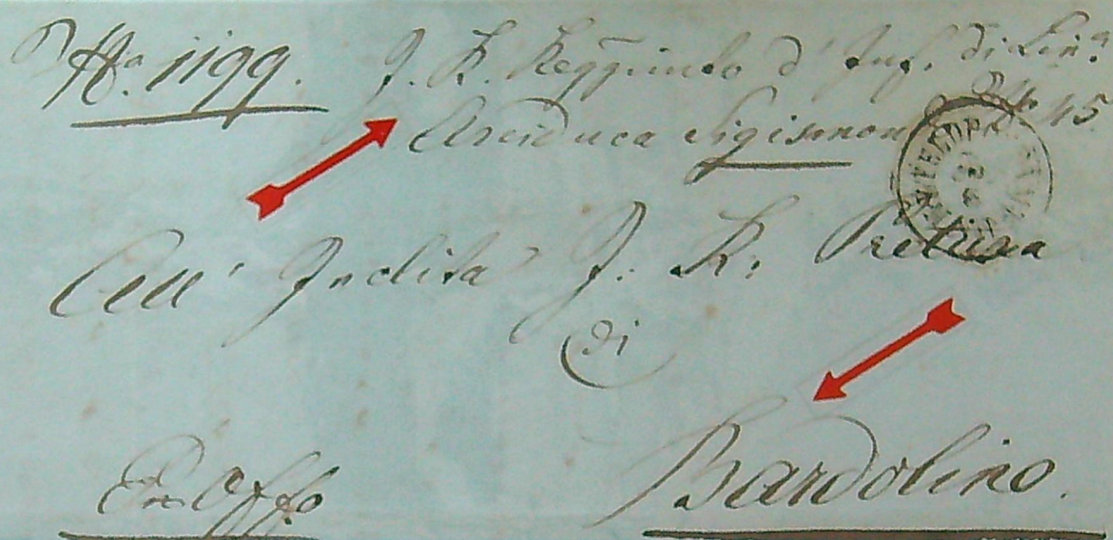 No. 1199. I. R. Reggimto d' Inf. di Lina.
Arciduca Sigismon No. 45
All' Inclita I. R. Pretura
di
Bardolino.
Ex Offo